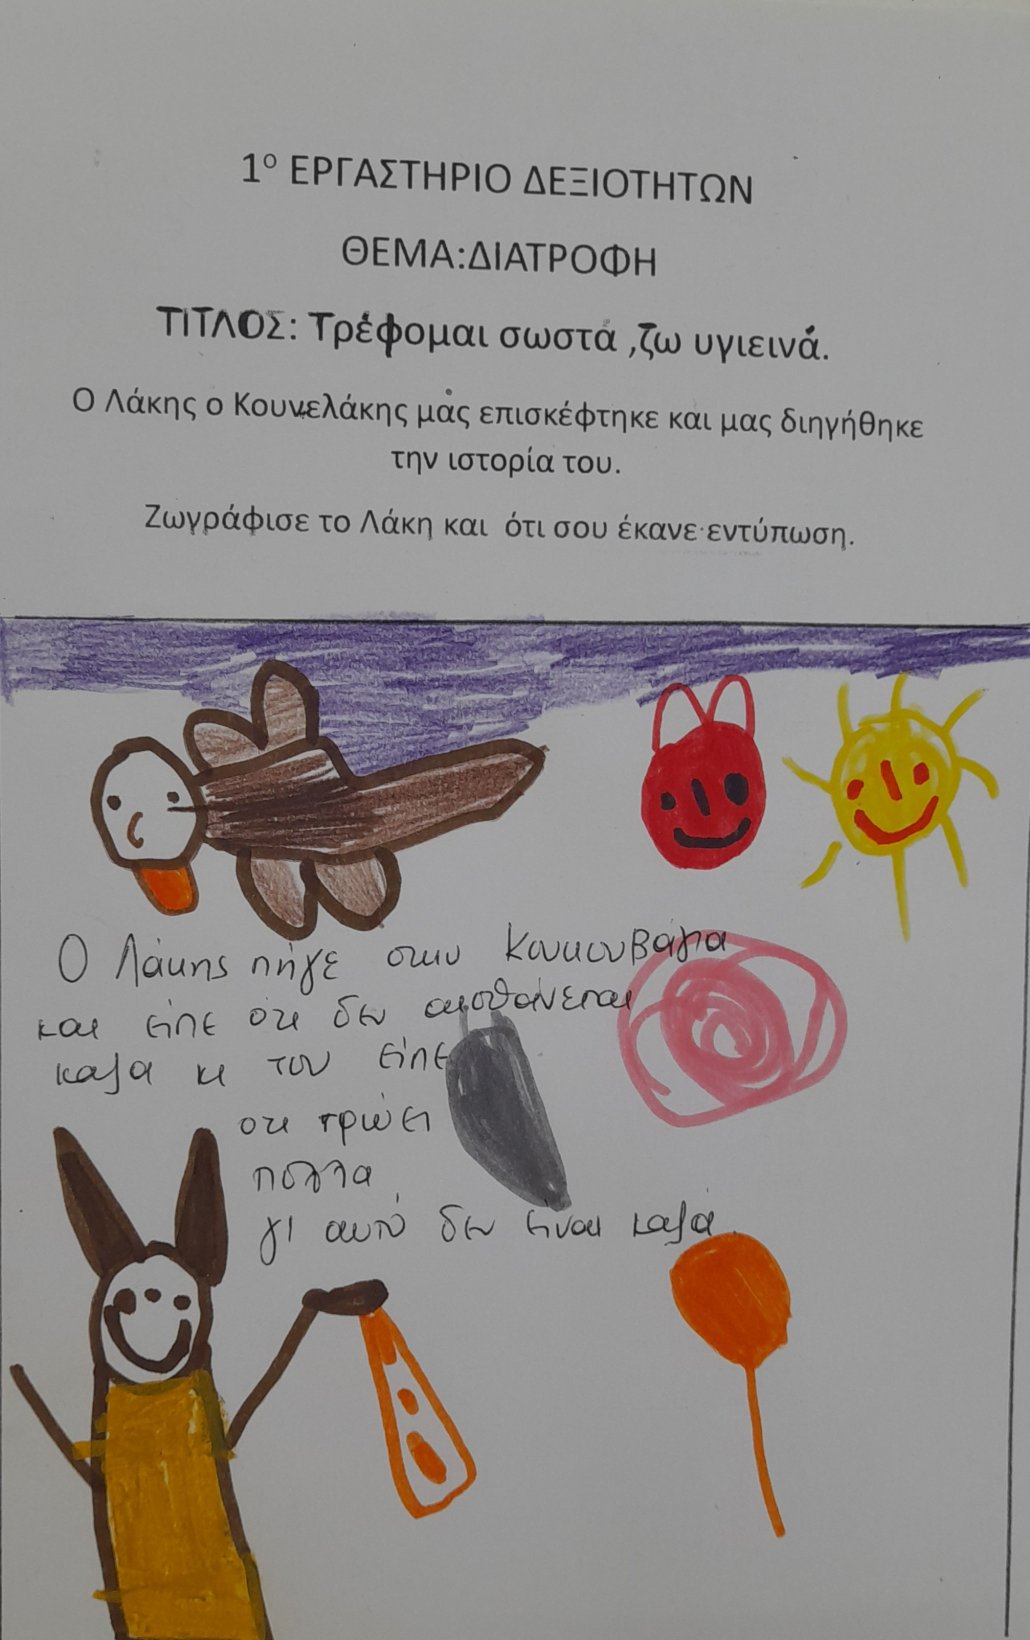 1ο ΕΡΓΑΣΤΗΡΙΟ ΔΕΞΙΟΤΗΤΩΝ
ΘΕΜΑ:ΔΙΑΤΡΟΦΗ
ΤΙΤΛΟΣ: Τρέφομαι σωστά ,ζω υγιεινά.
Ο Λάκης ο Κουνελάκης μας επισκέφτηκε και μας διηγήθηκε
την ιστορία του.
Ζωγράφισε το Λάκη και ότι σου έκανε εντύπωση.
Ο Λάκης πήγε στην κουκουβάγια
και είπε ότι δεν αισθάνεται
καλά κι του είπε
ότι τρώει
πολλα
γι αυτό δεν είναι καλά